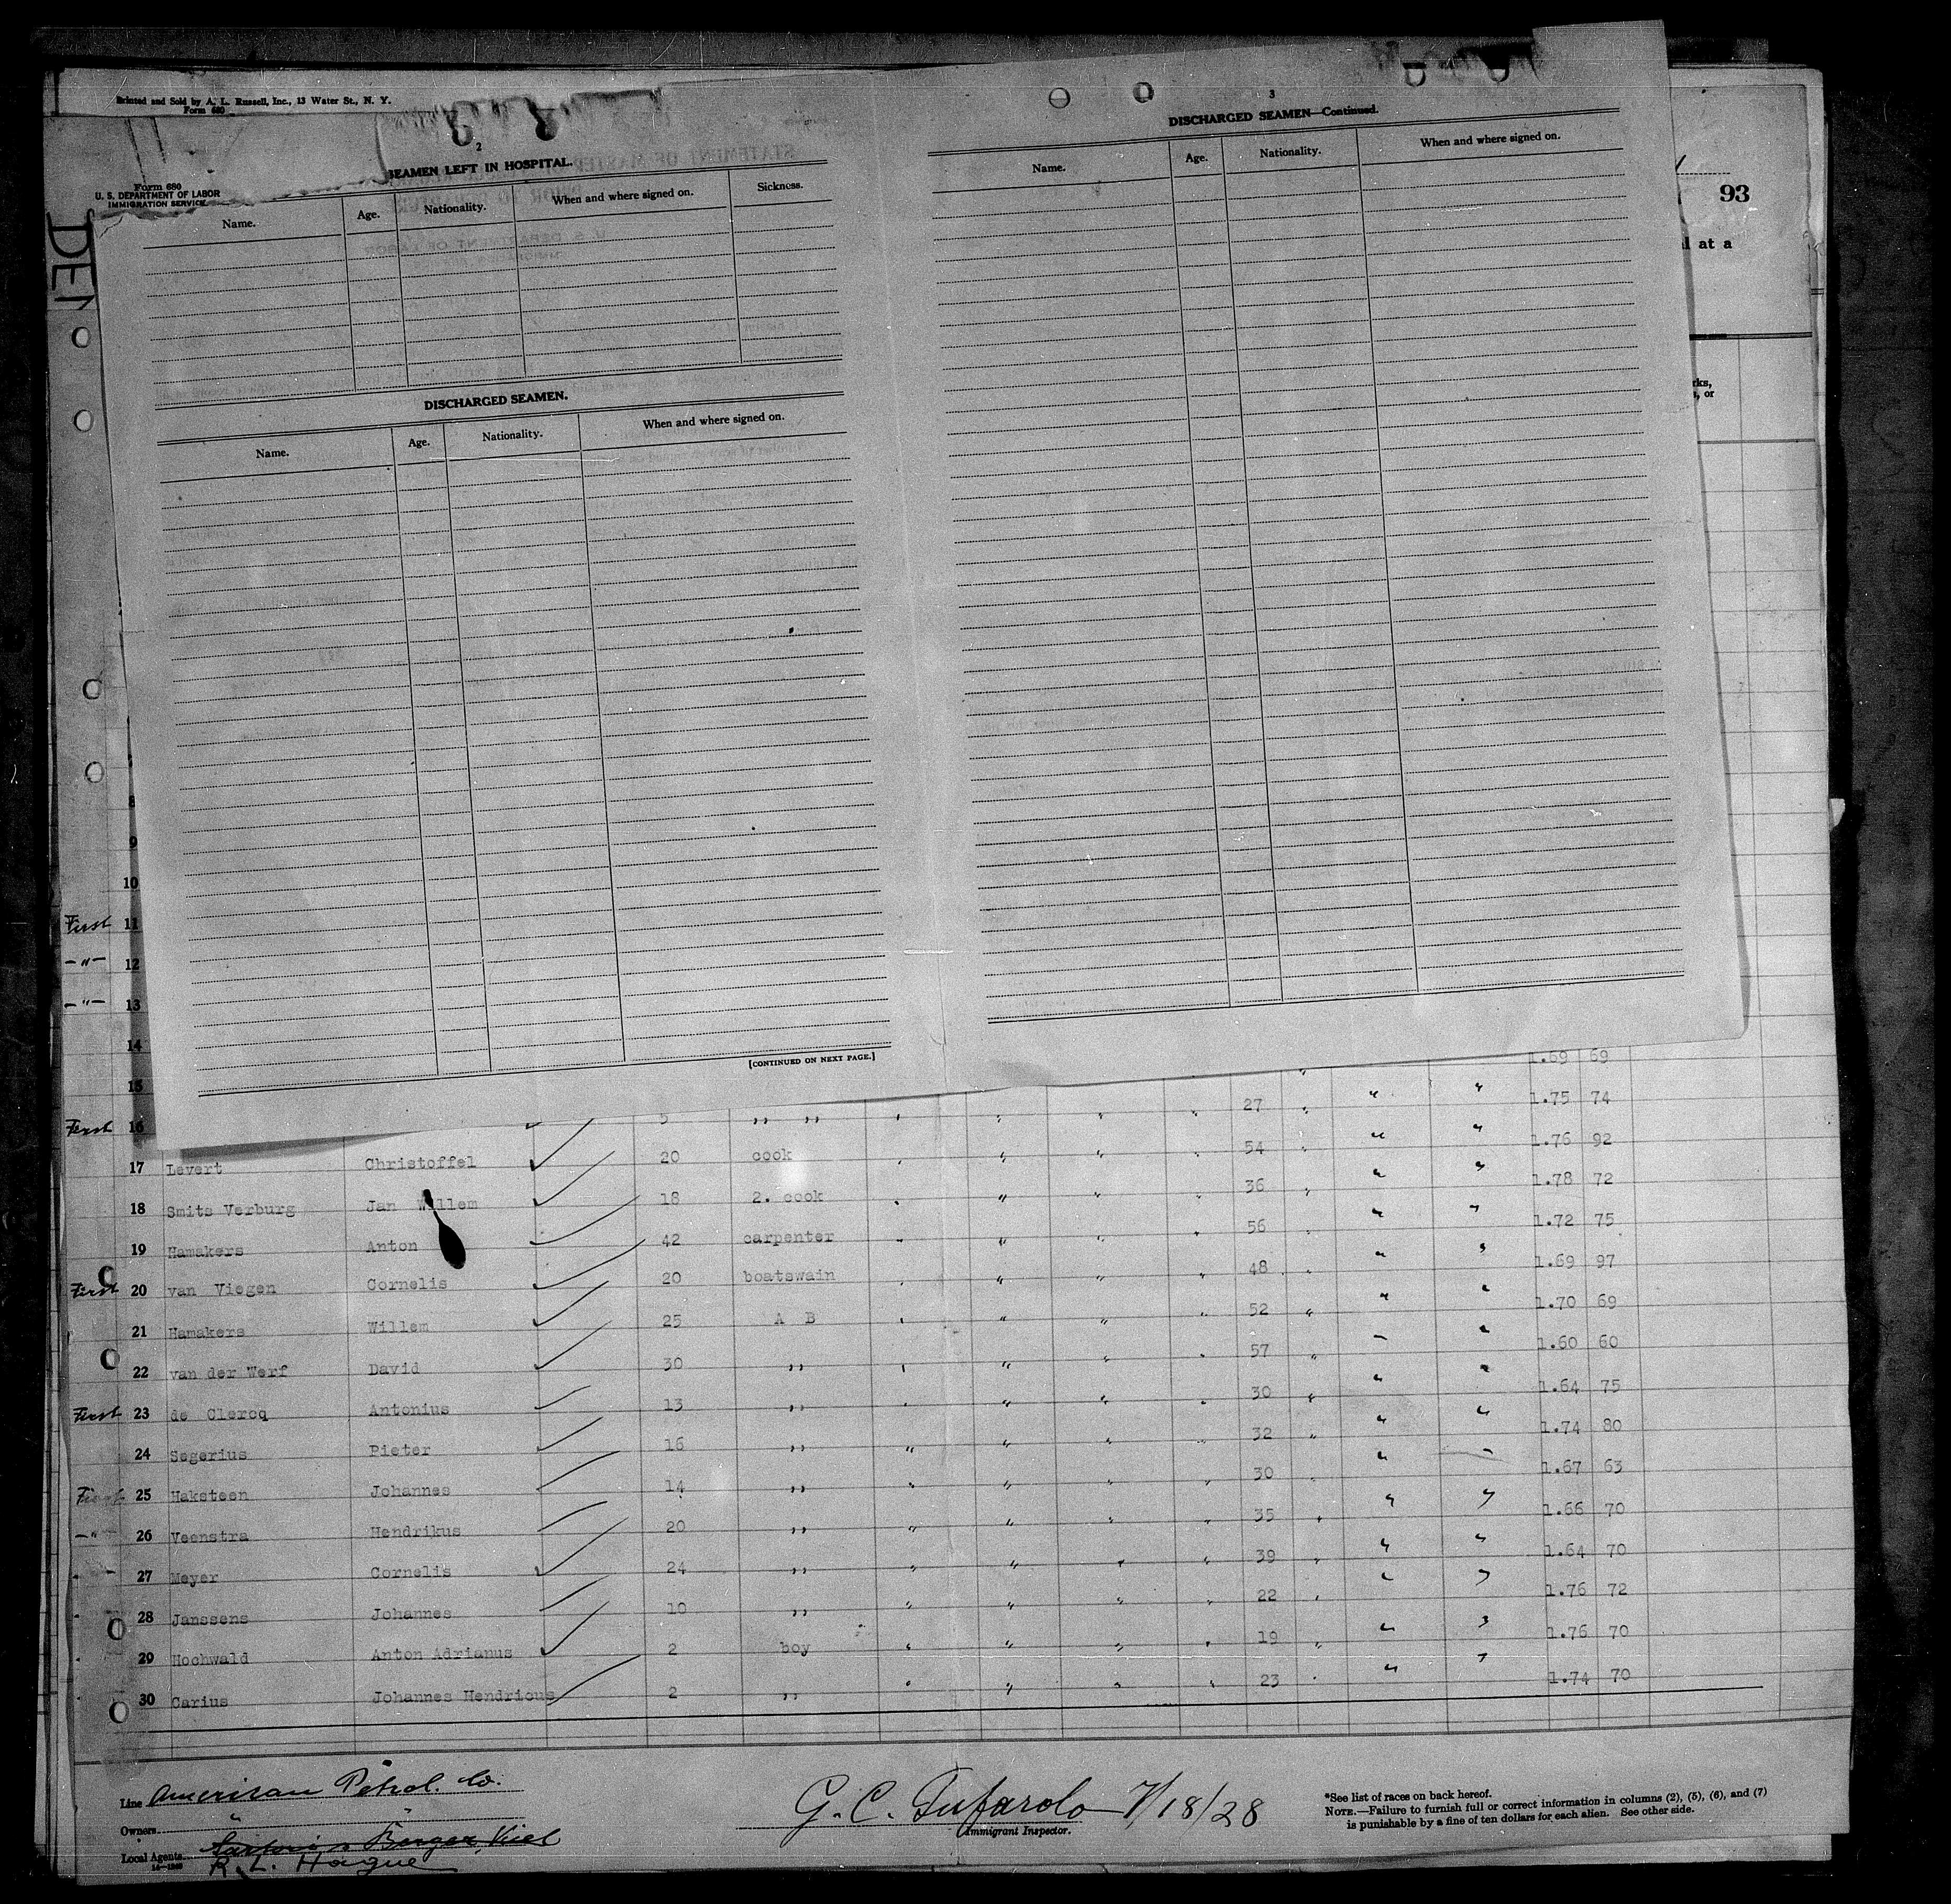 Printed and Sold by A. L. Russell, Inc., 13 Water St., N. Y.
Form 680
Form 680
U. S. DEPARTMENT OF LABOR
IMMIGRATION SERVICE
2
SEAMEN LEFT IN HOSPITAL.
Name. Age. Nationality. When and where signed on. Sickness.
DISCHARGED SEAMEN.
Name. Age. Nationality. When and where signed on.
[CONTINUED ON NEXT PAGE.]
3
DISCHARGED SEAMEN—Continued.
Name. Age. Nationality. When and where signed on.
93
at a
or
9
10
First 11
–"– 12
–"– 13
14 1.69 69
15 27 " " 1.75 74
First 16 5 ,, ,, " " " " 54 " " " 1.76 92
17 Levert Christoffel 20 cook " " " " 36 " " " 1.78 72
18 Smits Verburg Jan Willem 18 2. cook " " " " 56 " " " 1.72 75
19 Hamakers Anton 42 carpenter " " " " 48 " " " 1.69 97
First 20 van Viegen Cornelis 20 boatswain " " " " 52 " " " 1.70 69
21 Hamakers Willem 25 A B " " " " 57 " " " 1.60 60
22 van der Werf David 30 ,, " " " " 30 " " " 1.64 75
First 23 de Clercq Antonius 13 ,, " " " " 32 " " " 1.74 80
24 Segerius Pieter 16 ,, " " " " 30 " " " 1.67 63
First 25 Haksteen Johannes 14 ,, " " " " 35 " " " 1.66 70
–"– 26 Veenstra Hendrikus 20 ,, " " " " 39 " " " 1.64 70
27 Meyer Cornelis 24 ,, " " " " 22 " " " 1.76 72
28 Janssens Johannes 10 ,, " " " " 19 " " " 1.76 70
29 Hochwald Anton Adrianus 2 boy " " " " 23 " " " 1.74 70
30 Carius Johannes Hendricus 2 ,, " " " "
Line American Petrol. Co.
Owners " "
Local Agents Sartori & Berger, Kiel
R. L. Hague
G. C. Tufarolo 7/18/28
Immigrant Inspector.
*See list of races on back hereof.
NOTE.—Failure to furnish full or correct information in columns (2), (5), (6), and (7)
is punishable by a fine of ten dollars for each alien. See other side.